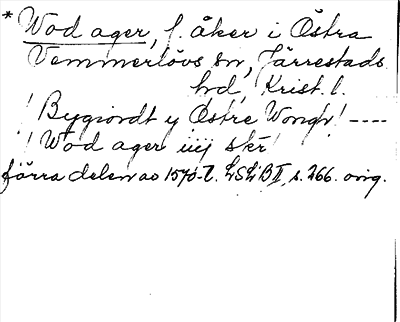 * Wod ager, f. åker i Östra
Vemmerlövs sn, Järrestads
hd, Krist. l.
! Bygiordt y Østre Wongh! ----
! Wod ager iiij skr!
förra delen av 1570-t. LSLB II, s. 266. orig.